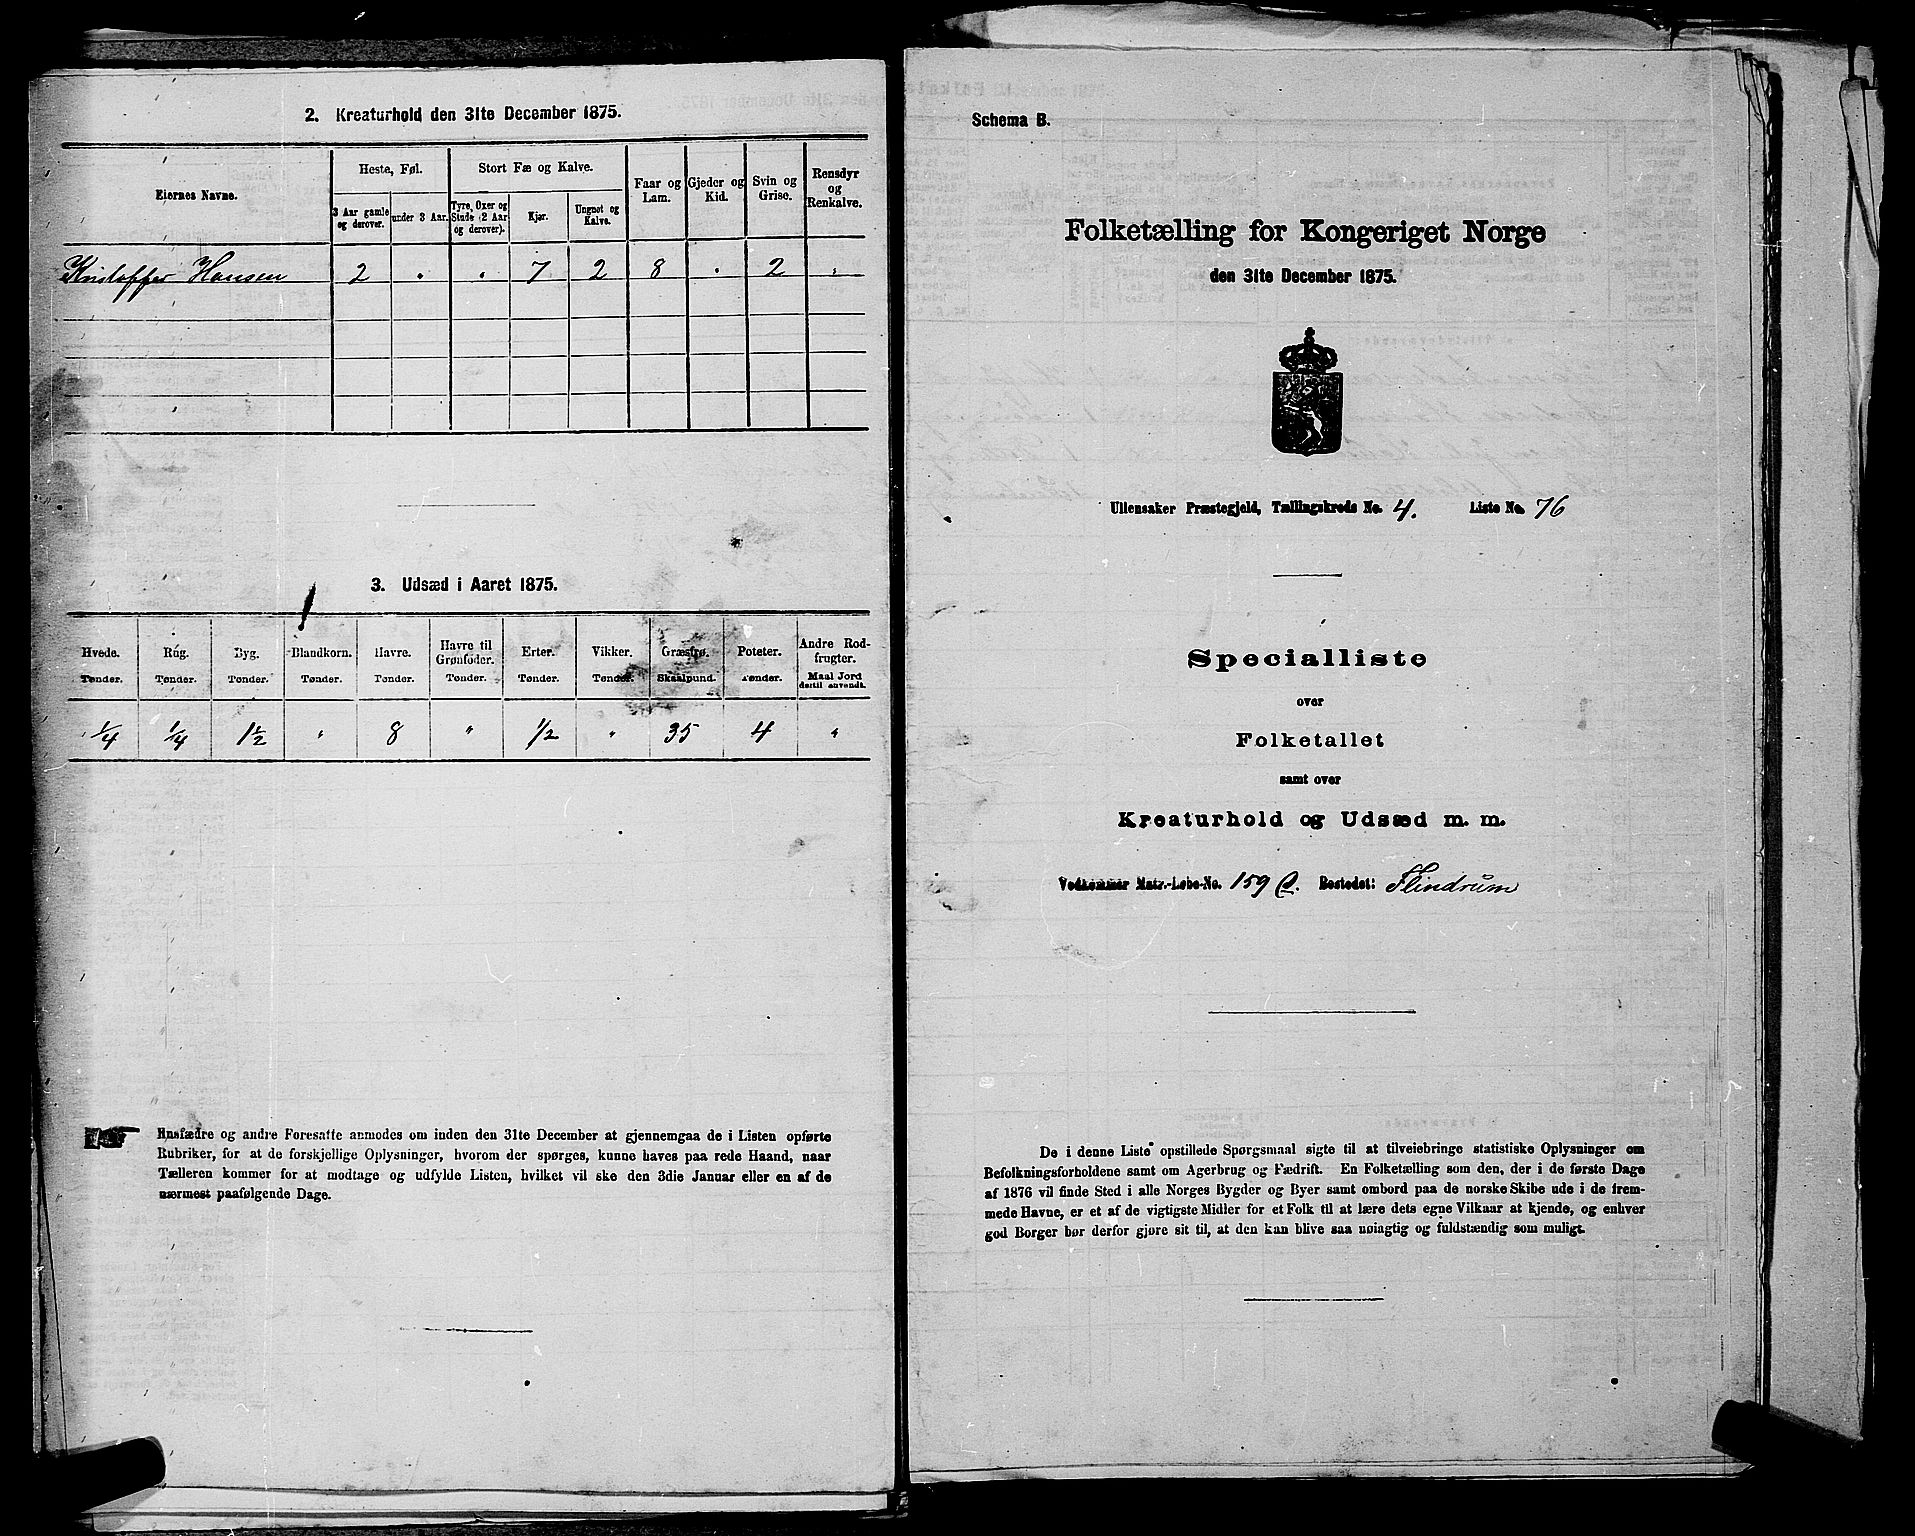 2. Kreaturhold den 31te December 1875.
Eiernes Navne.
Heste, Føl.
Stort Fæ og Kalve.
Faar og Lam.
Gjeder og Kid.
Svin og Grise.
Rensdyr og Renkalve.
3 Aar gamle og derover.
under 3 Aar.
Tyre, Oxer og Stude (2 Aar og derover).
Kjør.
Ungnøt og Kalve.
Kristoffer Hansen 2 " " 7 2 8 " 2 "
3. Udsæd i Aaret 1875.
Hvede. Rug. Byg. Blandkorn. Havre. Havre til Grønfoder. Erter. Vikker. Græsfrø. Poteter. Andre Rodfrugter.
Tønder. Tønder. Tønder. Tønder. Tønder. Tønder. Tønder. Tønder. Skaalpund. Tønder. Maal Jord dertil anvendt.
1/4 1/4 1 1/2 " 8 " 1/2 " 35 4 "
Husfædre og andre Foresatte anmodes om inden den 31te December at gjennemgaa de i Listen opførte
Rubriker, for at de forskjellige Oplysninger, hvorom der spørges, kunne haves paa rede Haand, naar
Tælleren kommer for at modtage og udfylde Listen, hvilket vil ske den 3die Januar eller en af de
nærmest paafølgende Dage.
Schema B.
Folketælling for Kongeriget Norge
den 31te December 1875.
Ullensaker Præstegjeld, Tællingskreds No. 4. Liste No. 76
Specialliste
over
Folketallet
samt over
Kreaturhold og Udsæd m. m.
Vedkommer Matr.-Løbe-No. 159 c. Bostedet: Flindrum
De i denne Liste opstillede Spørgsmaal sigte til at tilveiebringe statistiske Oplysninger om
Befolkningsforholdene samt om Agerbrug og Fædrift. En Folketælling som den, der i de første Dage
af 1876 vil finde Sted i alle Norges Bygder og Byer samt ombord paa de norske Skibe ude i de frem-
mede Havne, er et af de vigtigste Midler for et Folk til at lære dets egne Vilkaar at kjende, og enhver
god Borger bør derfor gjøre sit til, at den kan blive saa nøiagtig og fuldstændig som muligt.